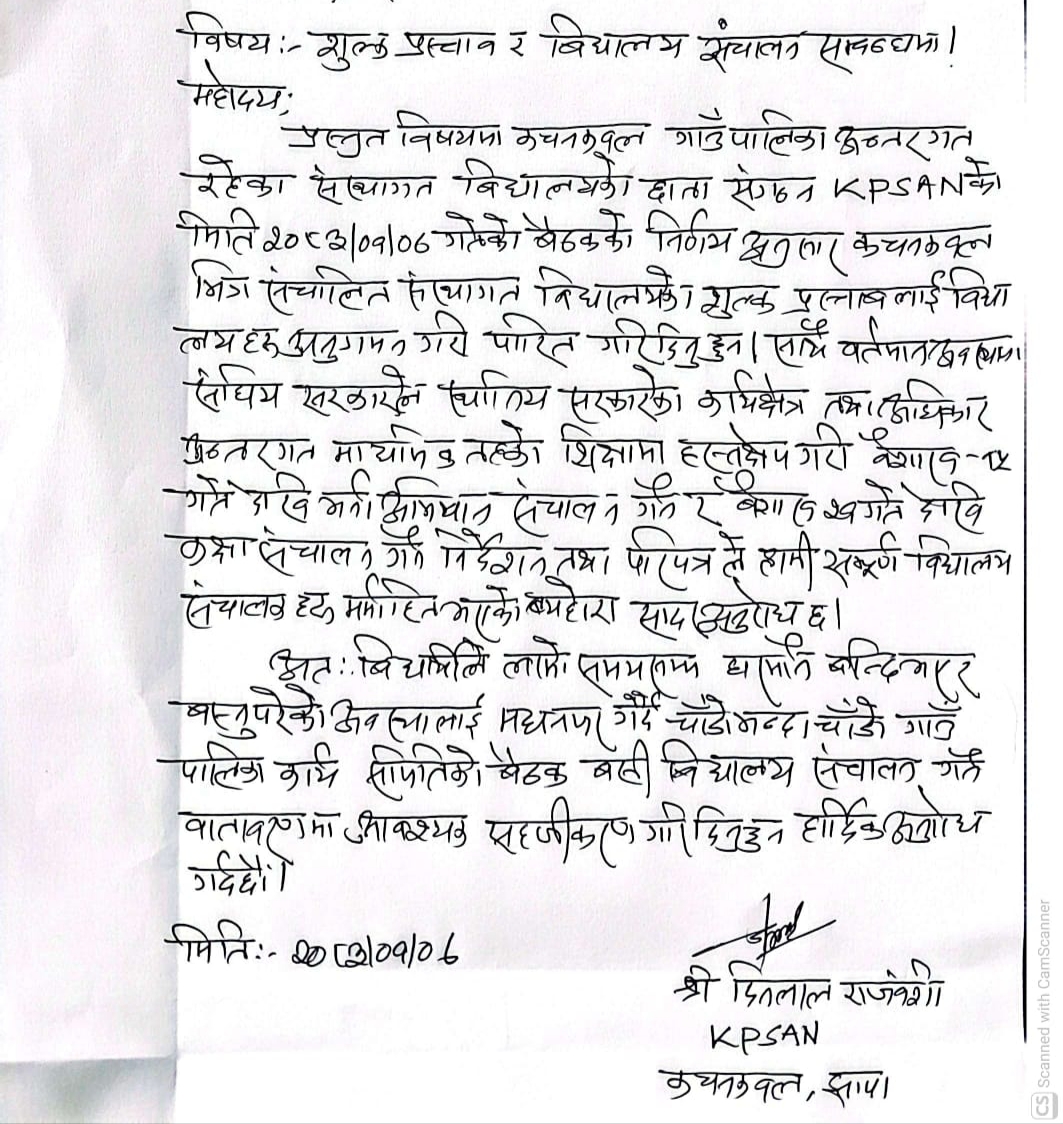 विषय :- शुल्क प्रस्ताव र बिद्यालय संचालन सम्वन्धमा।
महोदय;
प्रस्तुत विषयमा कचनकवल गाउँपालिका अन्तरगत
रहेका संस्थागत बिद्यालयको छाता संगठन KPSAN को
मिति २०८३/०१/०६ गतेको बैठकको निर्णय अनुसार कचनकवल
भित्र संचालित संस्थागत बिद्यालयको शुल्क प्रस्तावलाई विद्या
लयहरू अनुगमन गरी पारित गरिदिनु हुन। साथै वर्तमान अवस्थामा
संघिय सरकारले स्थानिय सरकारको कार्यक्षेत्र तथा अधिकार
अन्तरगत माध्यमिक तहको शिक्षामा हस्तक्षेप गरी बैशाख-१५
गते देखि भर्ना अभियान संचालन गर्न र बैशाख गते देखि
कक्षा संचालन गर्न निर्देशन तथा परिपत्र ले हामी सम्पूर्ण विद्यालय
संचालक हरू मर्माहित भएको ब्यहोरा सादर अनुरोध छ।
अत: बिद्यार्थीले लामो समयसम्म घरमानै बन्दि भएर
बस्नुपरेको अवस्थालाई मध्यनजर गर्दै चाँडो भन्दा चाँडो गाउँ
पालिका कार्य समितिको बैठक बसी बिद्यालय संचालन गर्न
वातावरणमा आवश्यक सहजीकरण गरिदिनुहुन हार्दिक अनुरोध
गर्दछौं।
मिति:- २०८३/०१/०६
श्री दिलाल राजवंशी
KPSAN
कचनकवल, झापा
CS Scanned with CamScanner